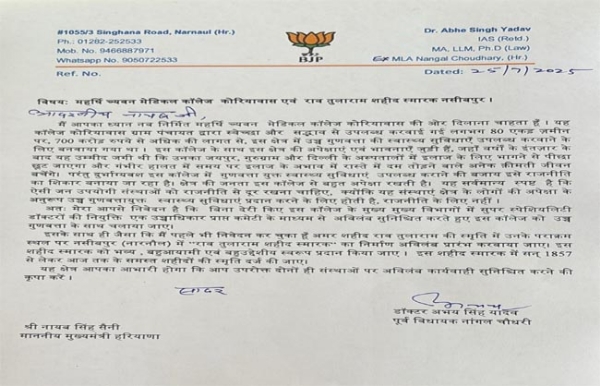 #1055/3 Singhana Road, Narnaul (Hr.)
Ph.: 01282-252533
Mob. No. 9466887971
Whatsapp No. 9050722533
Ref. No.
BJP
Dr. Abhe Singh Yadav
IAS (Retd.)
MA, LLM, Ph.D (Law)
Ex MLA Nangal Choudhary, (Hr.)
Dated: 25/7/2025
विषयः महर्षि च्यवन मेडिकल कॉलेज कोरियावास एवं राव तुलाराम शहीद स्मारक नसीबपुर।
आदरणीय नायब जी,
मैं आपका ध्यान नव निर्मित महर्षि च्यवन मेडिकल कॉलेज कोरियावास की और दिलाना चाहता हूँ। यह
कॉलेज कोरियावास ग्राम पंचायत द्वारा स्वेच्छा और सद्भाव से उपलब्ध करवाई गई लगभग 80 एकड़ ज़मीन
पर, 700 करोड़ रुपये से अधिक की लागत से, इस क्षेत्र में उच्च गुणवत्ता की स्वास्थ्य सुविधाएं उपलब्ध करवाने के
लिए बनवाया गया था। इस कॉलेज के साथ इस क्षेत्र की अपेक्षाएं एवं भावनाएं जुड़ी हैं, जहाँ वर्षों के इंतज़ार के
बाद यह उम्मीद जगी थी कि उनका जयपुर, गुरुग्राम और दिल्ली के अस्पतालों में इलाज के लिए भागने से पीछा
छूट जाएगा और गंभीर हालत में समय पर इलाज के अभाव में रास्ते में दम तोड़ने वाले अनेक कीमती जीवन
बचेंगे। परंतु दुर्भाग्यवश इस कॉलेज में गुणवत्ता युक्त स्वास्थ्य सुविधाएं उपलब्ध कराने की बजाय इसे राजनीति
का शिकार बनाया जा रहा है। क्षेत्र की जनता इस कॉलेज से बहुत अपेक्षा रखती है। यह सर्वमान्य स्पष्ट है कि
ऐसी जन उपयोगी संस्थाओं को राजनीति से दूर रखना चाहिए, क्योंकि यह संस्थाएं क्षेत्र के लोगों की अपेक्षा के
अनुरूप उच्च गुणवत्तायुक्त स्वास्थ्य सुविधाएं प्रदान करने के लिए होती है, राजनीति के लिए नहीं।
अतः मेरा आपसे निवेदन है कि बिना देरी किए इस कॉलेज के मुख्य मुख्य विभागों में सुपर स्पेशियलिटी
डॉक्टरों की नियुक्ति एक उच्चाधिकार प्राप्त कमेटी के माध्यम से अविलंब सुनिश्चित करते हुए इस कॉलेज को उच्च
गुणवत्ता के साथ चलाया जाए।
इसके साथ ही जैसा कि मैं पहले भी निवेदन कर चुका हूँ अमर शहीद राव तुलाराम की स्मृति में उनके पराक्रम
स्थल पर नसीबपुर (नारनौल) में "राव तुलाराम शहीद स्मारक" का निर्माण अविलंब प्रारंभ करवाया जाए। इस
शहीद स्मारक को भव्य, बहुआयामी एवं बहुउद्देशीय स्वरूप प्रदान किया जाए। इस शहीद स्मारक में सन् 1857
से लेकर आज तक के समस्त शहीदों की स्मृति दर्ज की जाए।
यह क्षेत्र आपका आभारी होगा कि आप उपरोक्त दोनों ही संस्थाओं पर अविलंब कार्यवाही सुनिश्चित करने की
कृपा करें।
सादर
डॉक्टर अभय सिंह यादव
पूर्व विधायक नांगल चौधरी
श्री नायब सिंह सैनी
माननीय मुख्यमंत्री हरियाणा